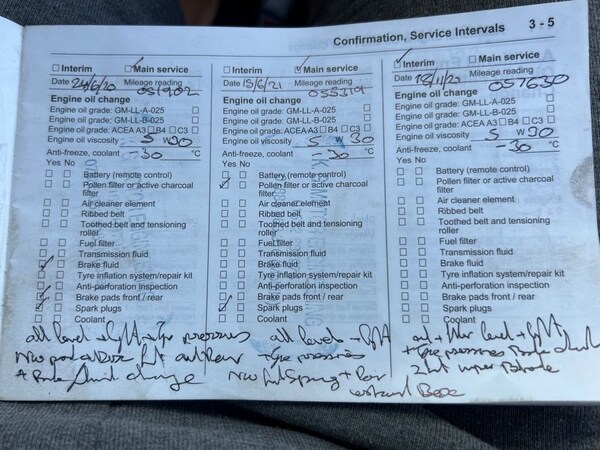 Confirmation, Service Intervals 3 - 5
Interim Main service
Date 24/6/20 Mileage reading
051902
Engine oil change
Engine oil grade: GM-LL-A-025
Engine oil grade: GM-LL-B-025
Engine oil grade: ACEA A3 B4 C3
Engine oil viscosity 5 W 30
Anti-freeze, coolant -30 °C
Yes No
Battery (remote control)
Pollen filter or active charcoal
filter
Air cleaner element
Ribbed belt
Toothed belt and tensioning
roller
Fuel filter
Transmission fluid
Brake fluid
Tyre inflation system/repair kit
Anti-perforation inspection
Brake pads front / rear
Spark plugs
Coolant
all level + light + tyre pressures
fluid change
Interim Main service
Date 15/6/21 Mileage reading
055319
Engine oil change
Engine oil grade: GM-LL-A-025
Engine oil grade: GM-LL-B-025
Engine oil grade: ACEA A3 B4 C3
Engine oil viscosity 5 W 30
Anti-freeze, coolant -30 °C
Yes No
Battery (remote control)
Pollen filter or active charcoal
filter
Air cleaner element
Ribbed belt
Toothed belt and tensioning
roller
Fuel filter
Transmission fluid
Brake fluid
Tyre inflation system/repair kit
Anti-perforation inspection
Brake pads front / rear
Spark plugs
Coolant
all levels + light
+ tyre pressures
New
Interim Main service
Date Mileage reading
057630
Engine oil change
Engine oil grade: GM-LL-A-025
Engine oil grade: GM-LL-B-025
Engine oil grade: ACEA A3 B4 C3
Engine oil viscosity 5 W 30
Anti-freeze, coolant -30 °C
Yes No
Battery (remote control)
Pollen filter or active charcoal
filter
Air cleaner element
Ribbed belt
Toothed belt and tensioning
roller
Fuel filter
Transmission fluid
Brake fluid
Tyre inflation system/repair kit
Anti-perforation inspection
Brake pads front / rear
Spark plugs
Coolant
filter level + light
+ tyre pressures